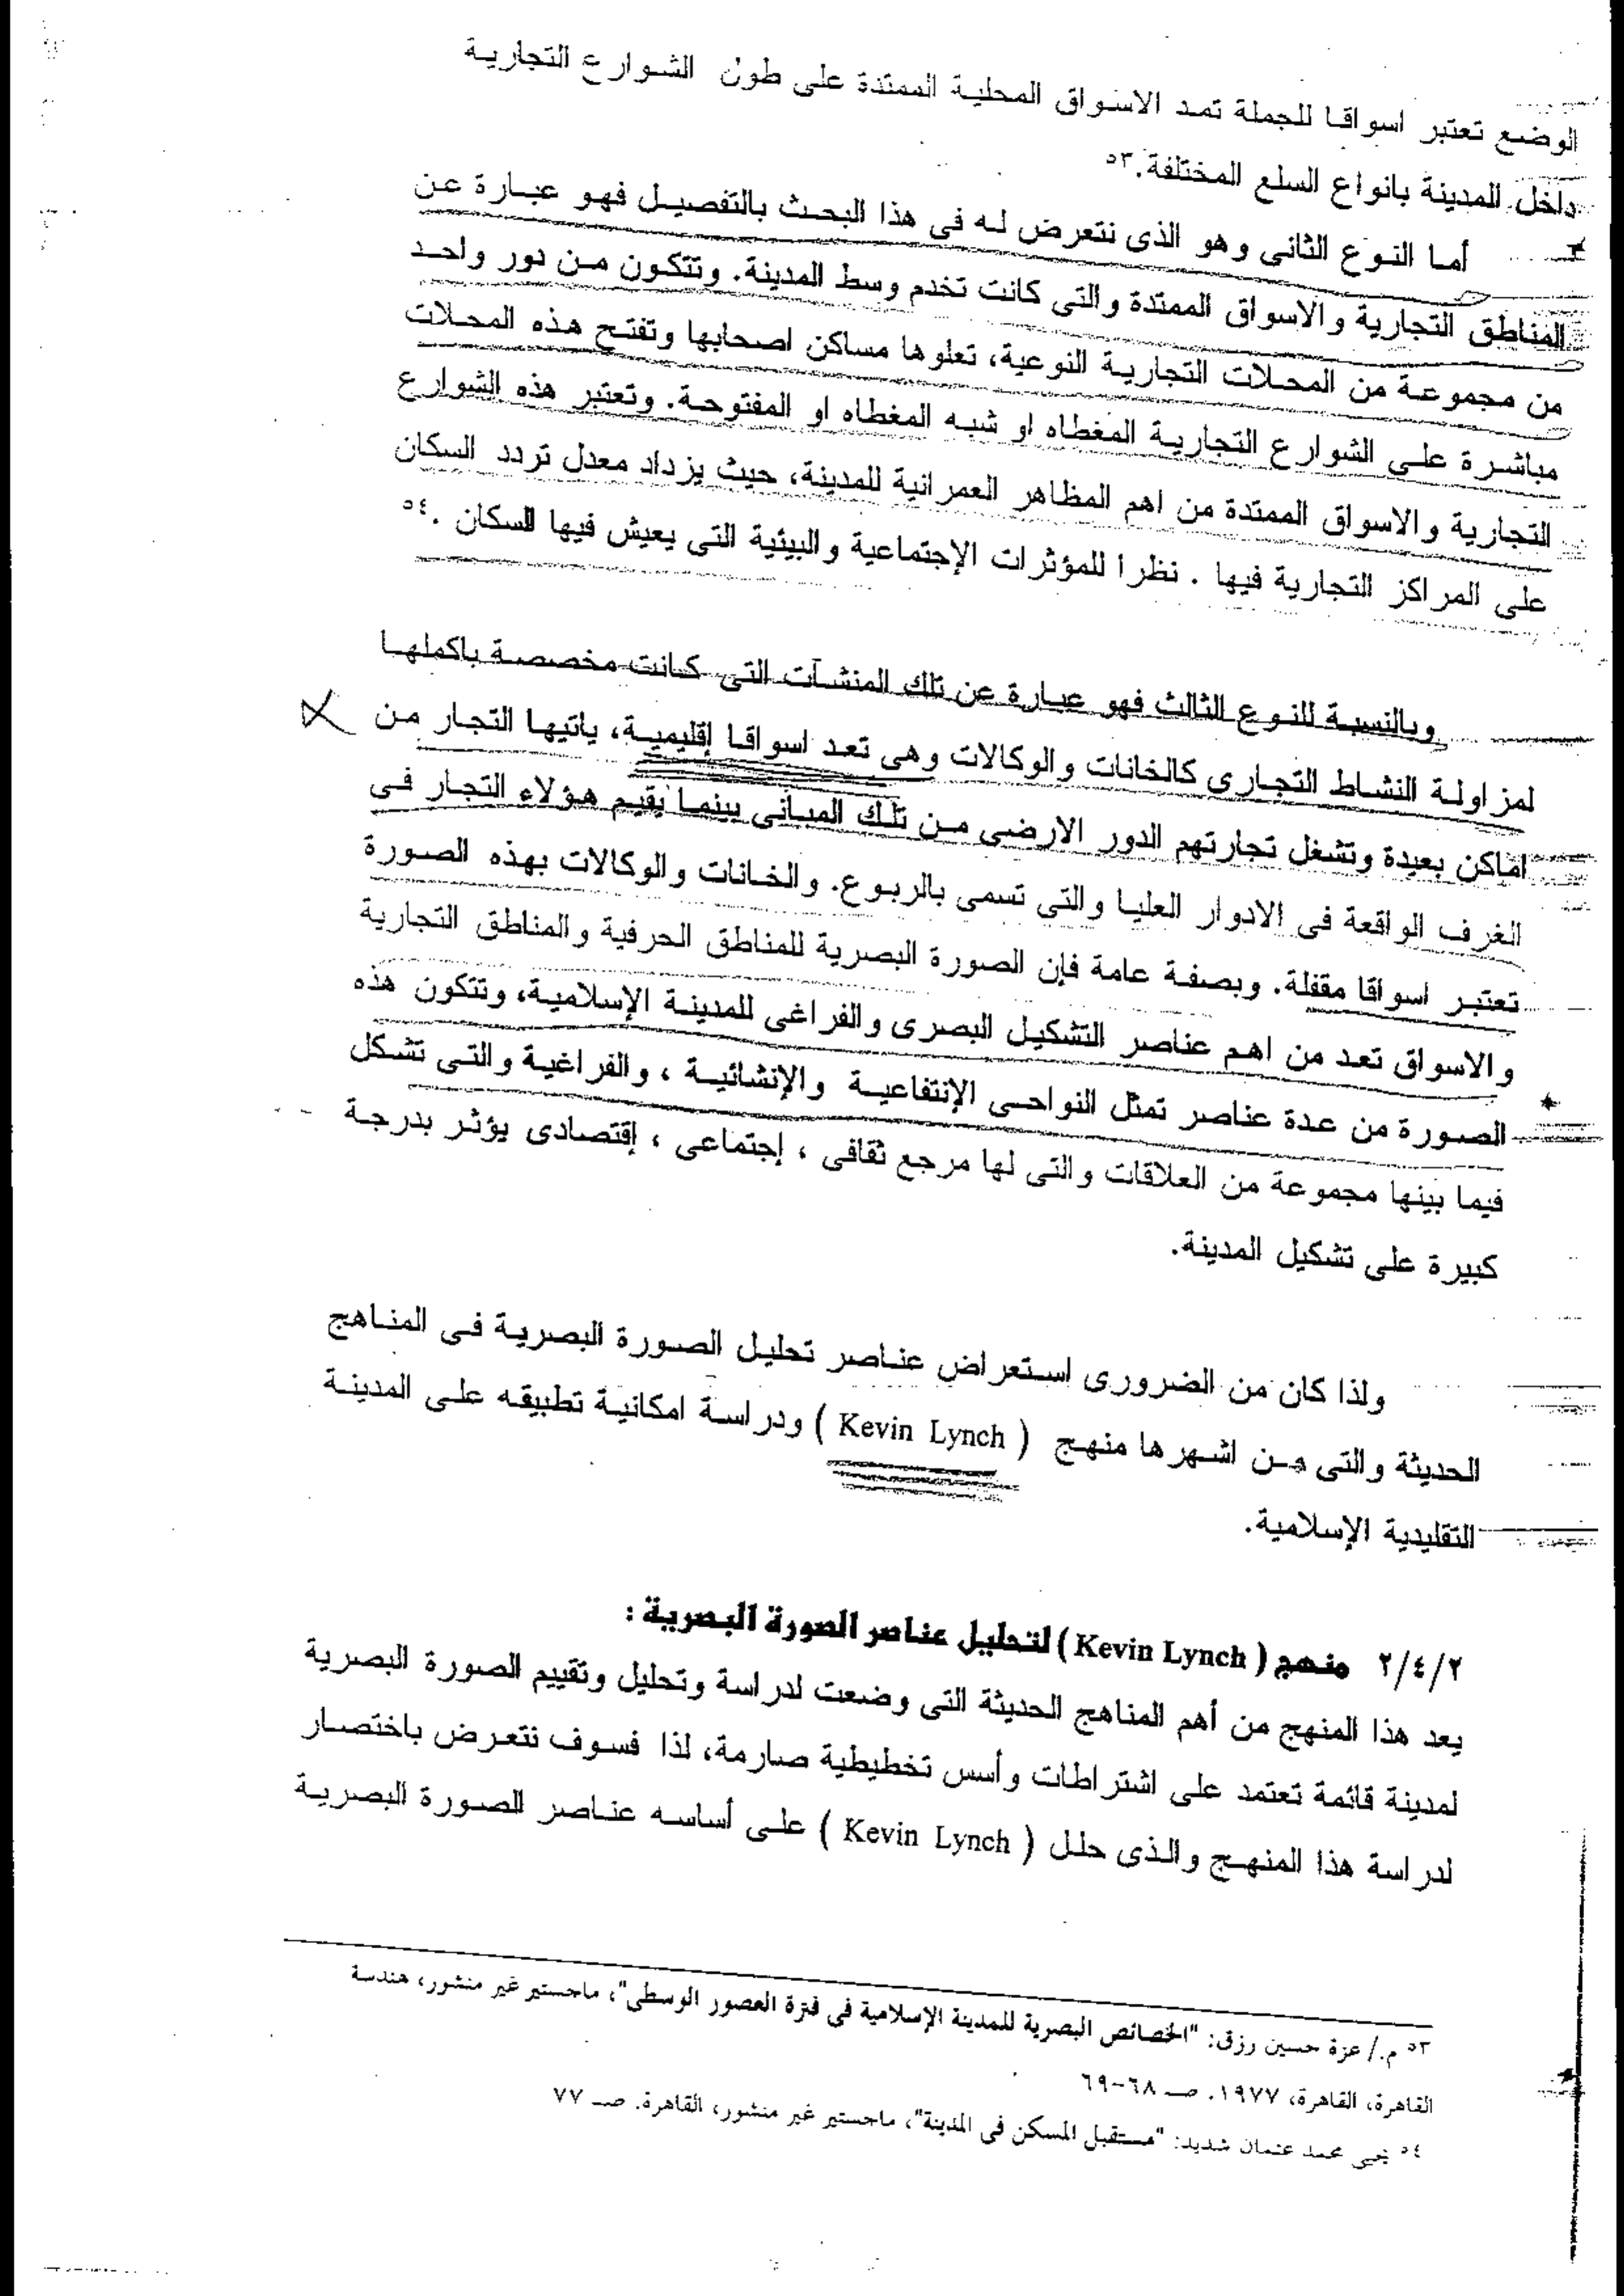 الوضع تعتبر اسواقا للجملة تمد الاسواق المحلية الممتدة على طول الشوارع التجارية
داخل المدينة بانواع السلع المختلفة.٥٣
أما النوع الثانى وهو الذى نتعرض له فى هذا البحث بالتفصيل فهو عبارة عن
المناطق التجارية والاسواق الممتدة والتى كانت تخدم وسط المدينة. وتتكون من دور واحد
من مجموعة من المحلات التجارية النوعية، تعلوها مساكن اصحابها وتفتح هذه المحلات
مباشرة على الشوارع التجارية المغطاه او شبه المغطاه او المفتوحة. وتعتبر هذه الشوارع
التجارية والاسواق الممتدة من اهم المظاهر العمرانية للمدينة، حيث يزداد معدل تردد السكان
على المراكز التجارية فيها . نظرا للمؤثرات الإجتماعية والبيئية التى يعيش فيها السكان .٥٤
وبالنسبة للنوع الثالث فهو عبارة عن تلك المنشآت التى كانت مخصصة باكملها
لمزاولة النشاط التجارى كالخانات والوكالات وهى تعد اسواقا إقليمية، ياتيها التجار من
اماكن بعيدة وتشغل تجارتهم الدور الارضى من تلك المبانى بينما يقيم هؤلاء التجار فى
الغرف الواقعة فى الادوار العليا والتى تسمى بالربوع. والخانات والوكالات بهذه الصورة
تعتبر اسواقا مقفلة. وبصفة عامة فإن الصورة البصرية للمناطق الحرفية والمناطق التجارية
والاسواق تعد من اهم عناصر التشكيل البصرى والفراغى للمدينة الإسلامية، وتتكون هذه
الصورة من عدة عناصر تمثل النواحى الإنتفاعية والإنشائية ، والفراغية والتى تشكل
فيما بينها مجموعة من العلاقات والتى لها مرجع ثقافى ، إجتماعى ، إقتصادى يؤثر بدرجة
كبيرة على تشكيل المدينة.
ولذا كان من الضرورى استعراض عناصر تحليل الصورة البصرية فى المناهج
الحديثة والتى من اشهرها منهج ( Kevin Lynch ) ودراسة امكانية تطبيقه على المدينة
التقليدية الإسلامية.
٢/٤/٢ منهج ( Kevin Lynch ) لتحليل عناصر الصورة البصرية :
يعد هذا المنهج من أهم المناهج الحديثة التى وضعت لدراسة وتحليل وتقييم الصورة البصرية
لمدينة قائمة تعتمد على اشتراطات وأسس تخطيطية صارمة، لذا فسوف نتعرض باختصار
لدراسة هذا المنهج والذى حلل ( Kevin Lynch ) على أساسه عناصر الصورة البصرية
٥٣ م./ عزة حسين رزق: "الخصائص البصرية للمدينة الإسلامية فى فترة العصور الوسطى"، ماجستير غير منشور، هندسة
القاهرة، القاهرة، ١٩٧٧. صـ ٦٨-٦٩
٥٤ يحيى محمد عثمان شديد: "مستقبل المسكن فى المدينة"، ماجستير غير منشور، القاهرة. صـ ٧٧